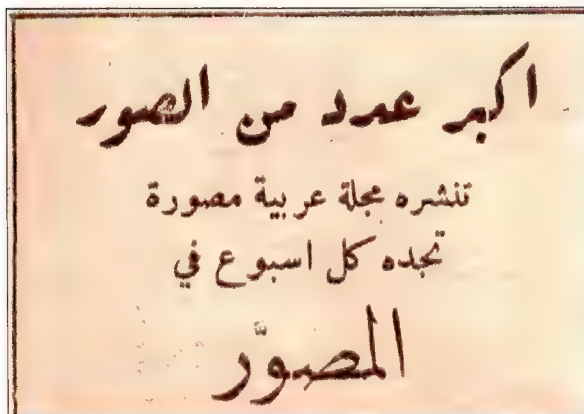 اكبر عدد من الصور
تنشره مجلة عربية مصورة
تجده كل اسبوع في
المصوّر